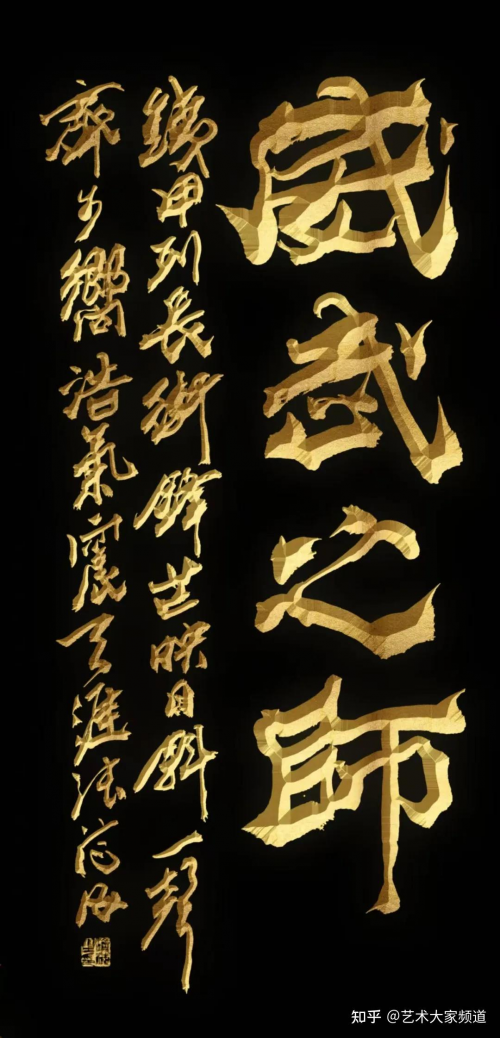 威武之師
鐵甲列長街鋒芒映日斜一聲
齊步響浩氣震天涯法
知乎 @艺术大家频道